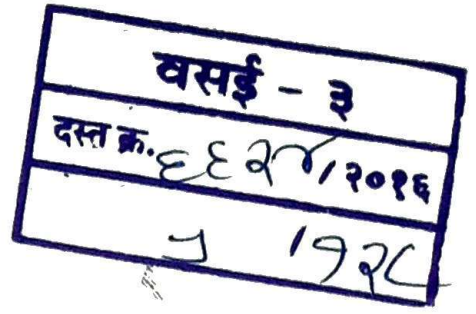 वसई - ३
दस्त क्र. ६६२४/२०१६
५ /१२८